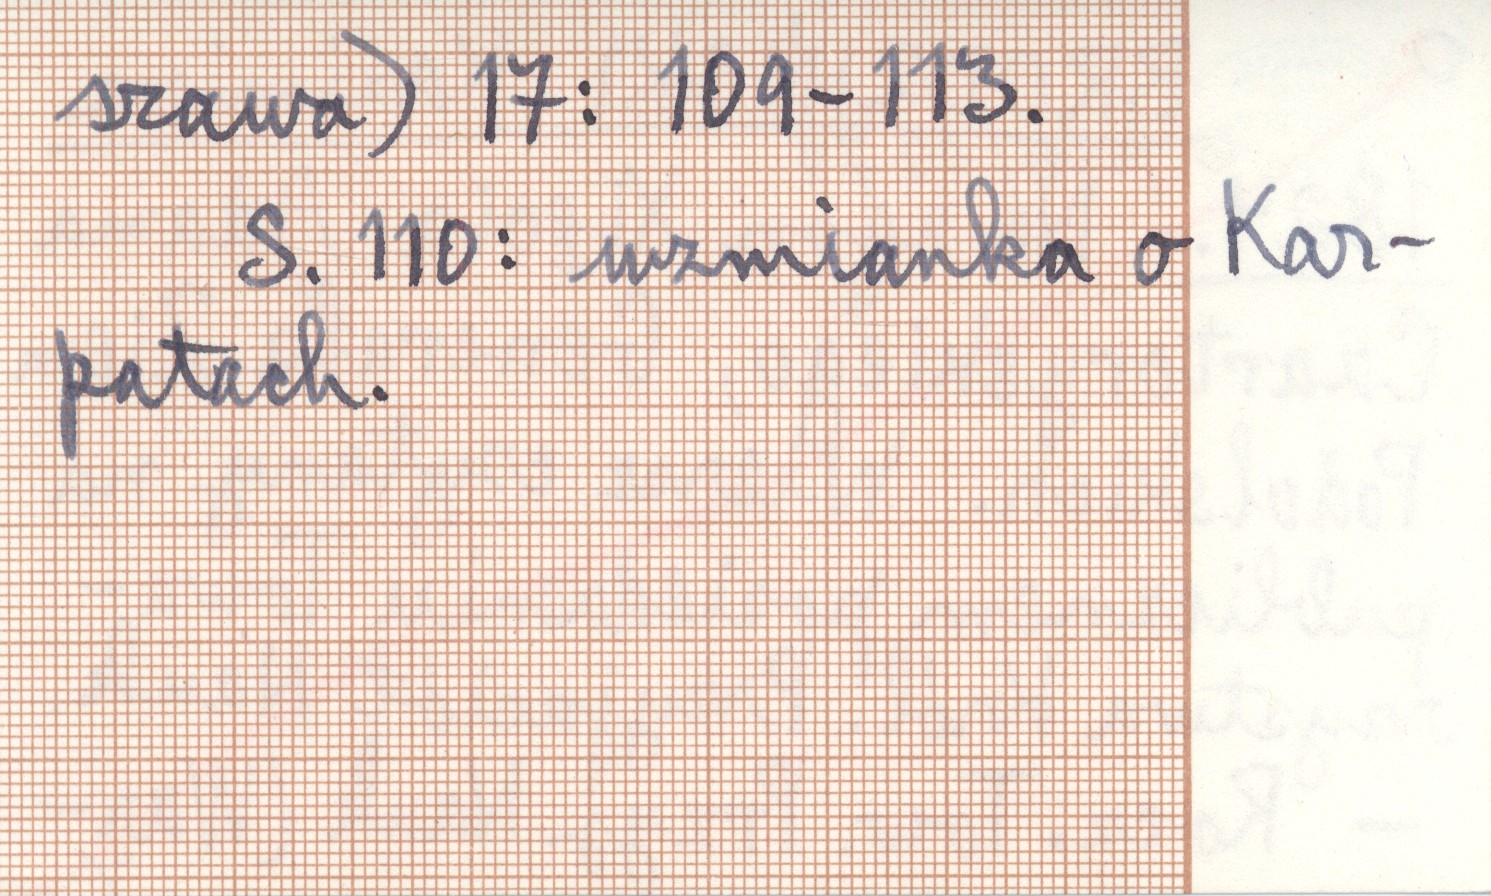 szawa) 17: 109-113.
S. 110: wzmianka o Kar-
patach.